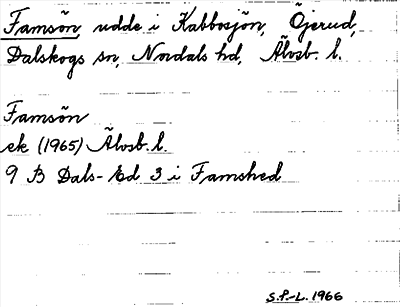 Famsön udde i Kabbosjön, Öjerud,
Dalskogs sn, Nordals hd, Älvsb. l.
Famsön
ek (1965) Älvsb. l.
9 B Dals-Ed 3 i Famshed
S.P-L. 1966